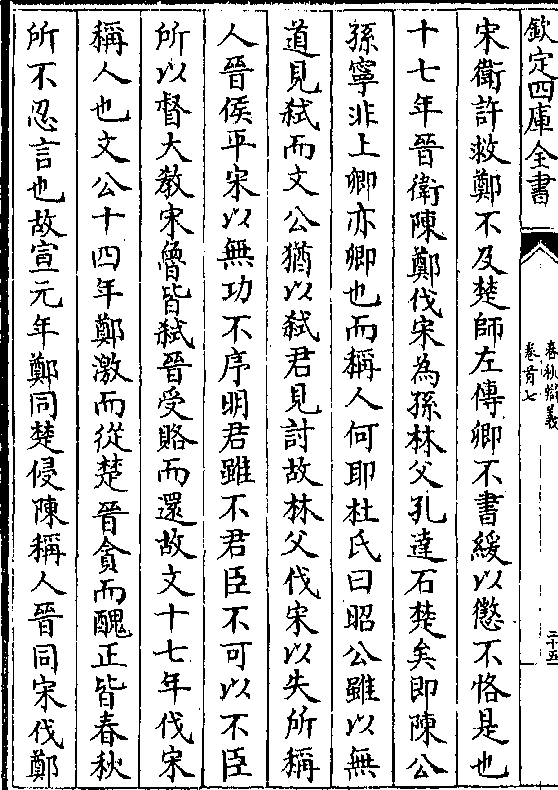 欽定四庫全書
春秋辯義
卷首七
二十五
宋衛許救鄭不及楚師左傳卿不書緩以懲不恪是也
十七年晉衛陳鄭伐宋為孫林父孔達石楚矣即陳公
孫寧非上卿亦卿也而稱人何耶杜氏曰昭公雖以無
道見弑而文公猶以弑君見討故林父伐宋以失所稱
人晉侯平宋以無功不序明君雖不君臣不可以不臣
所以督大教宋魯皆弑晉受賂而還故文十七年伐宋
稱人也文公十四年鄭激而從楚晉貪而醜正皆春秋
所不忍言也故宣元年鄭同楚侵陳稱人晉同宋伐鄭